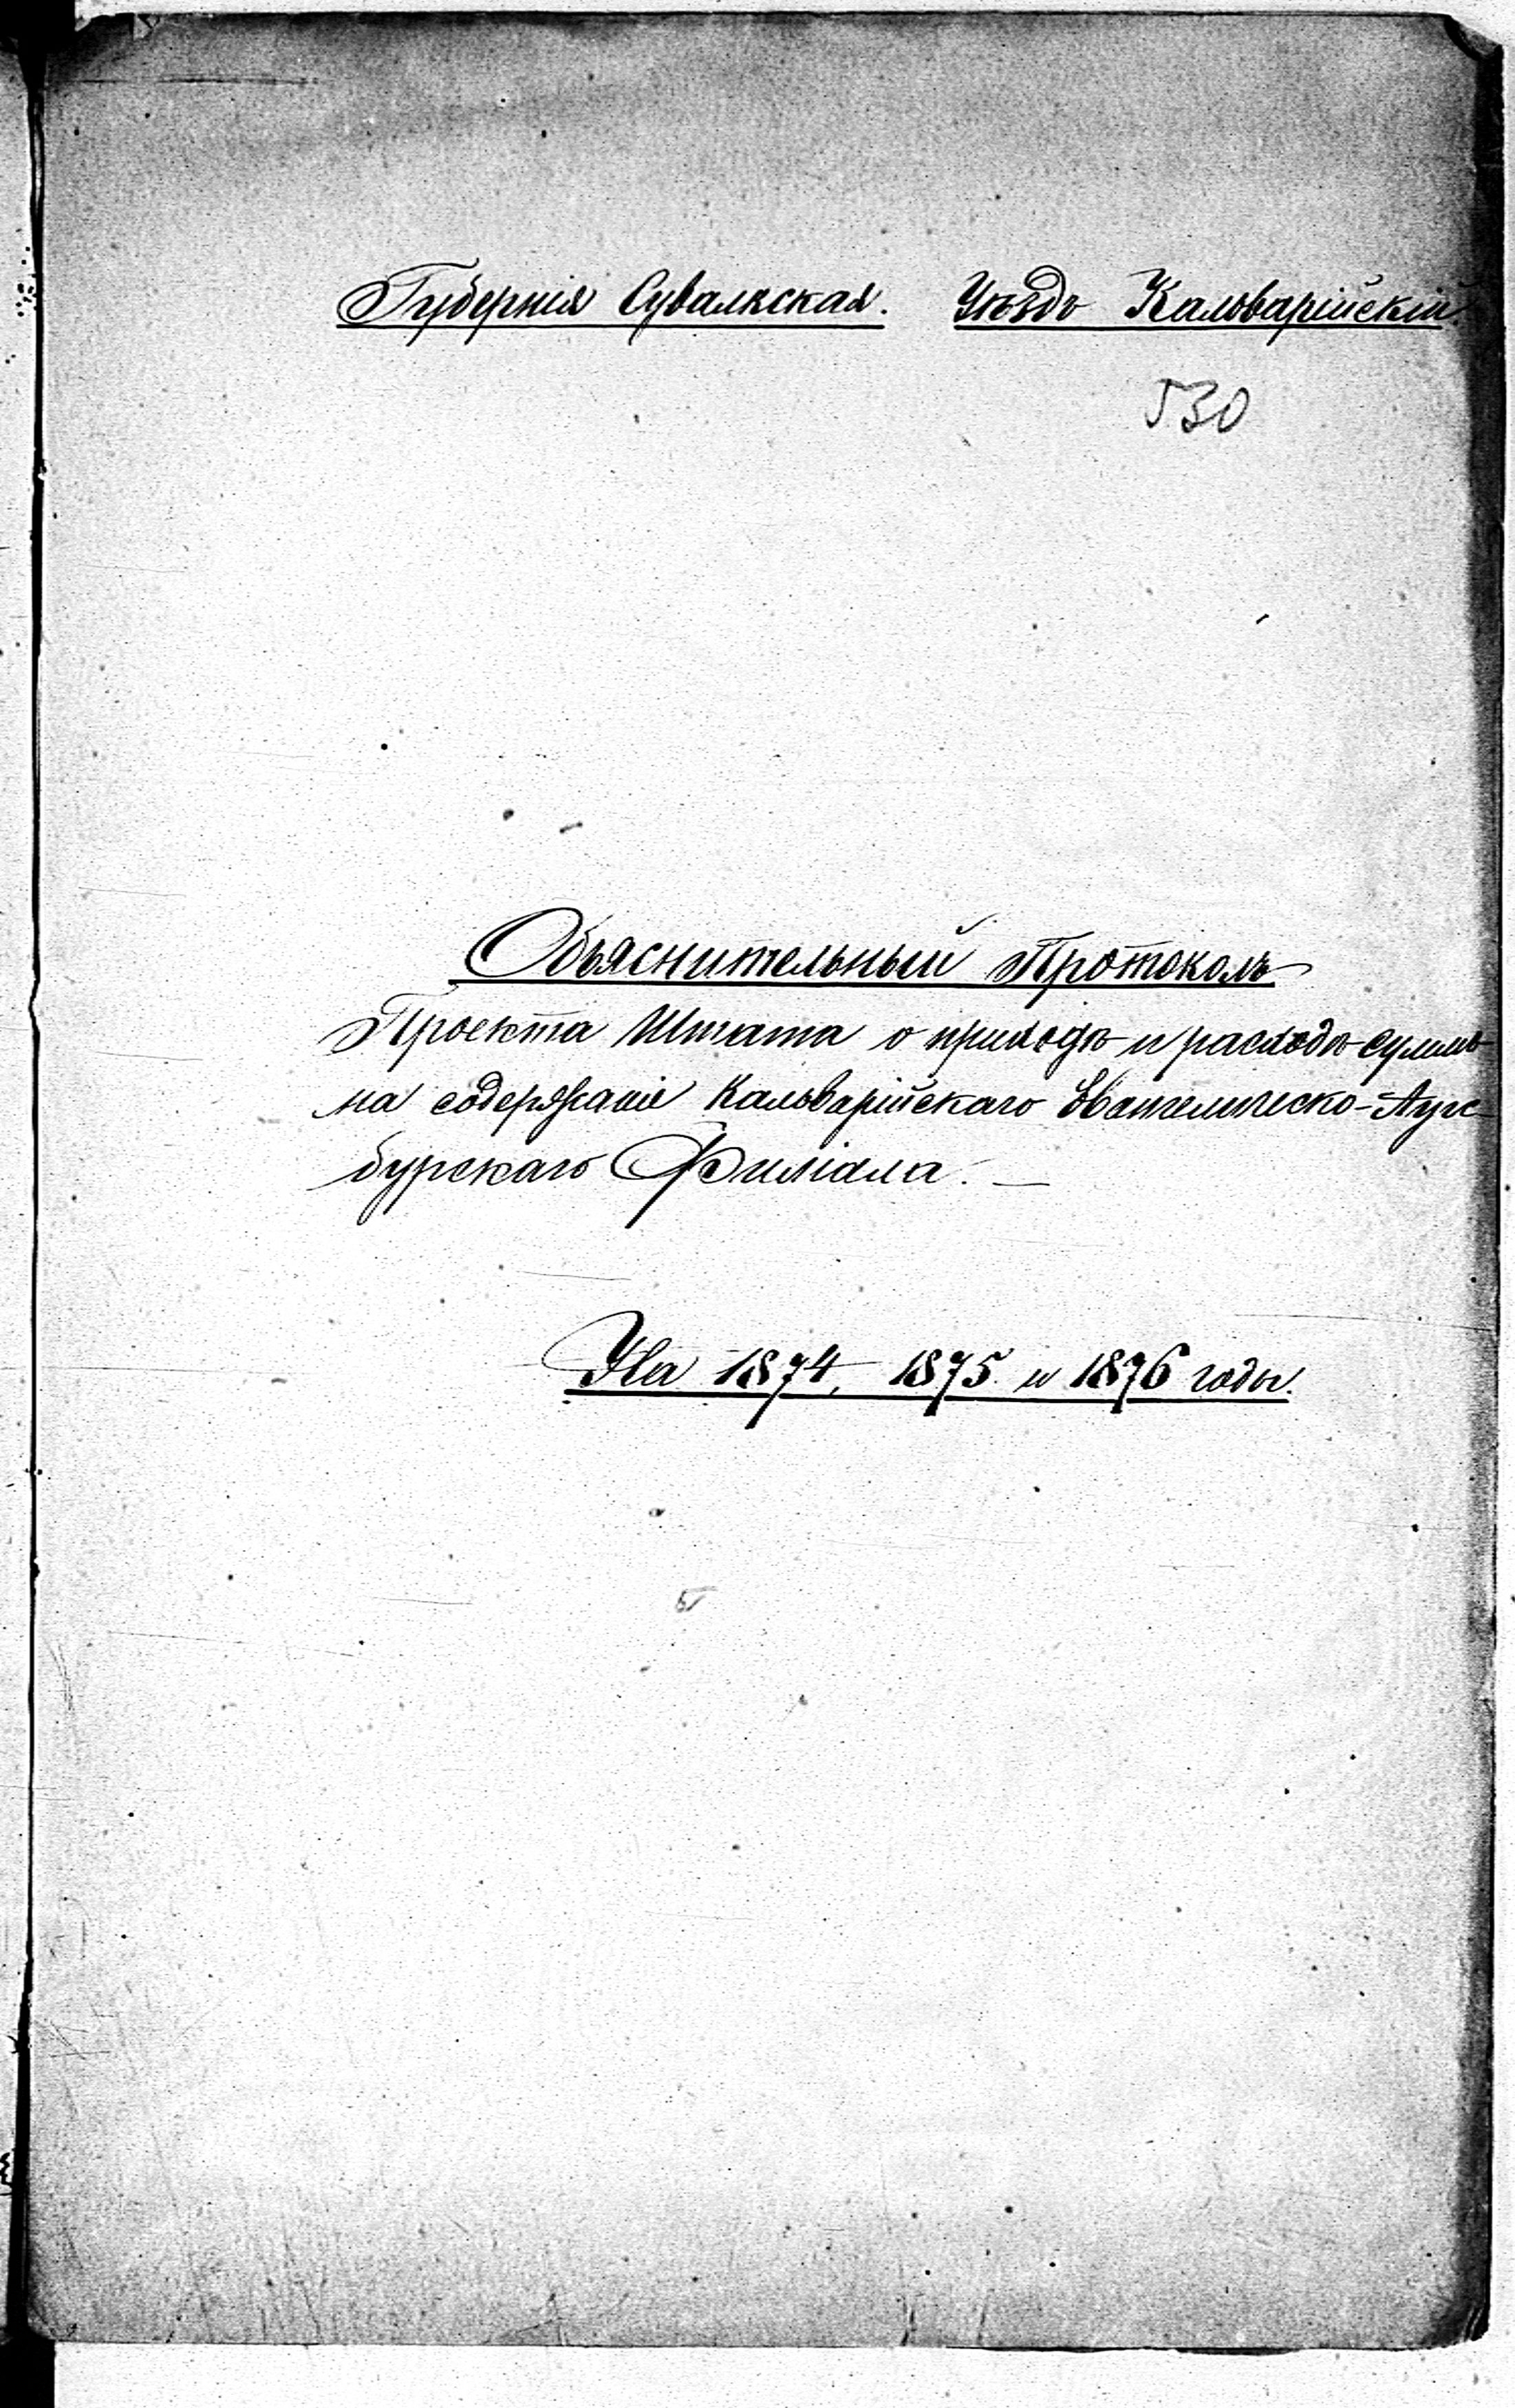 Губернія Сувалкская. Уѣздъ Кальварійскій.
530
Объяснительный Протоколъ
Проекта Штата о приходѣ и расходѣ суммъ
на содержаніе Кальварійскаго Евангелическо-Аугс-
бурскаго Филіала. —
На 1874, 1875 и 1876 годы.